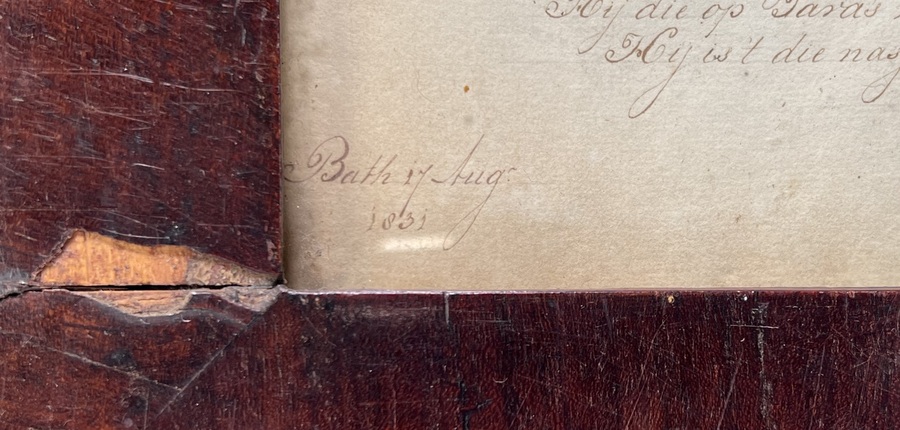 Hij die op Taras
Hij is't die nas
Bath 17 Aug:
1831